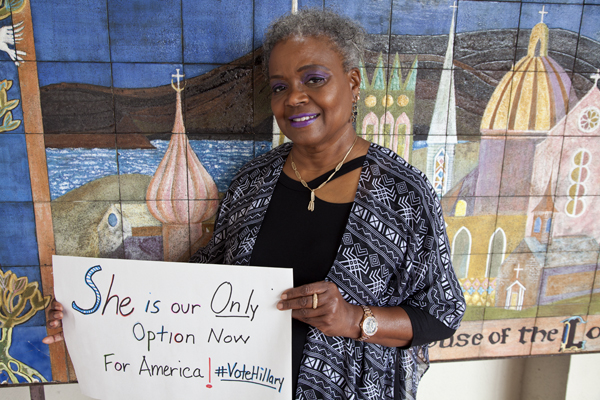 She is our Only
Option Now
For America! #VoteHillary
ouse of the Lo